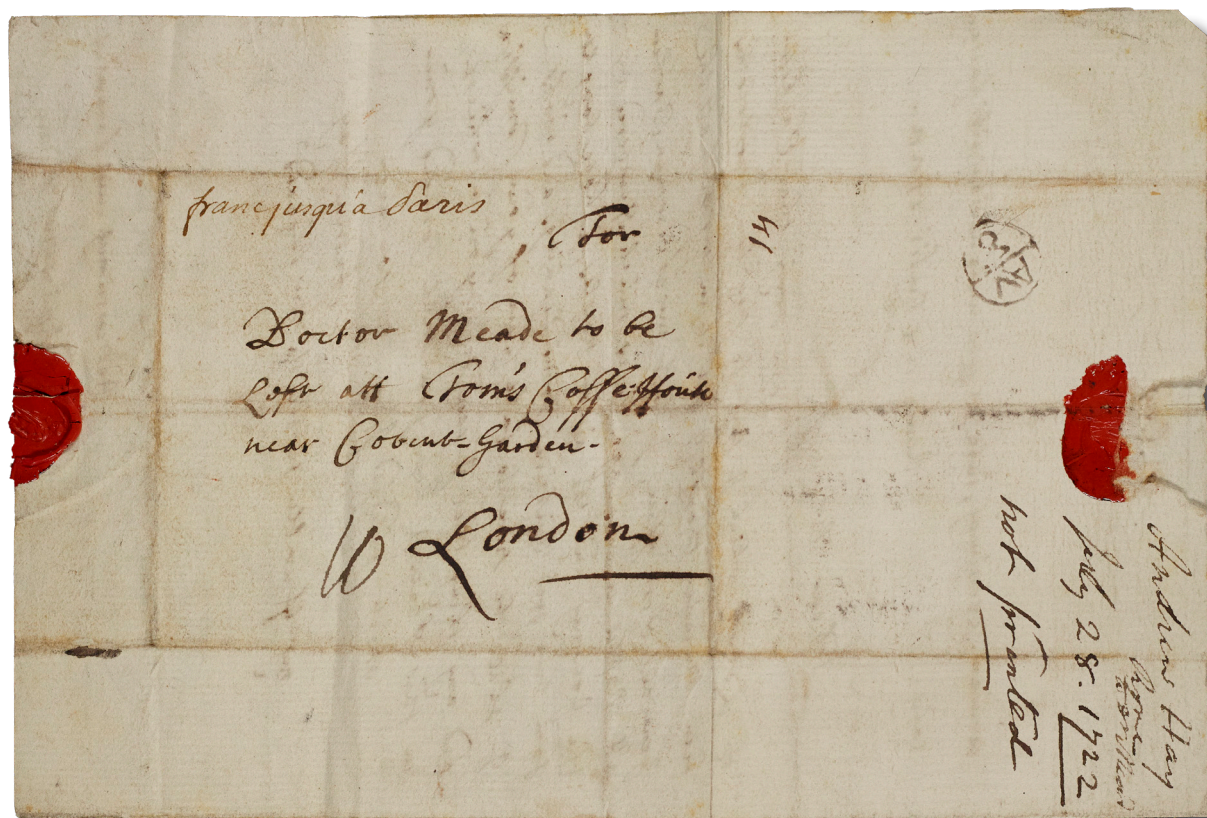 franc jusqu'a Paris
For
Doctor Meade to be
Left att Tom's Coffe-House
near Covent-Garden-
10 London
Andrew Hay
Rome
to Dr Mead
July 28. 1722
not printed